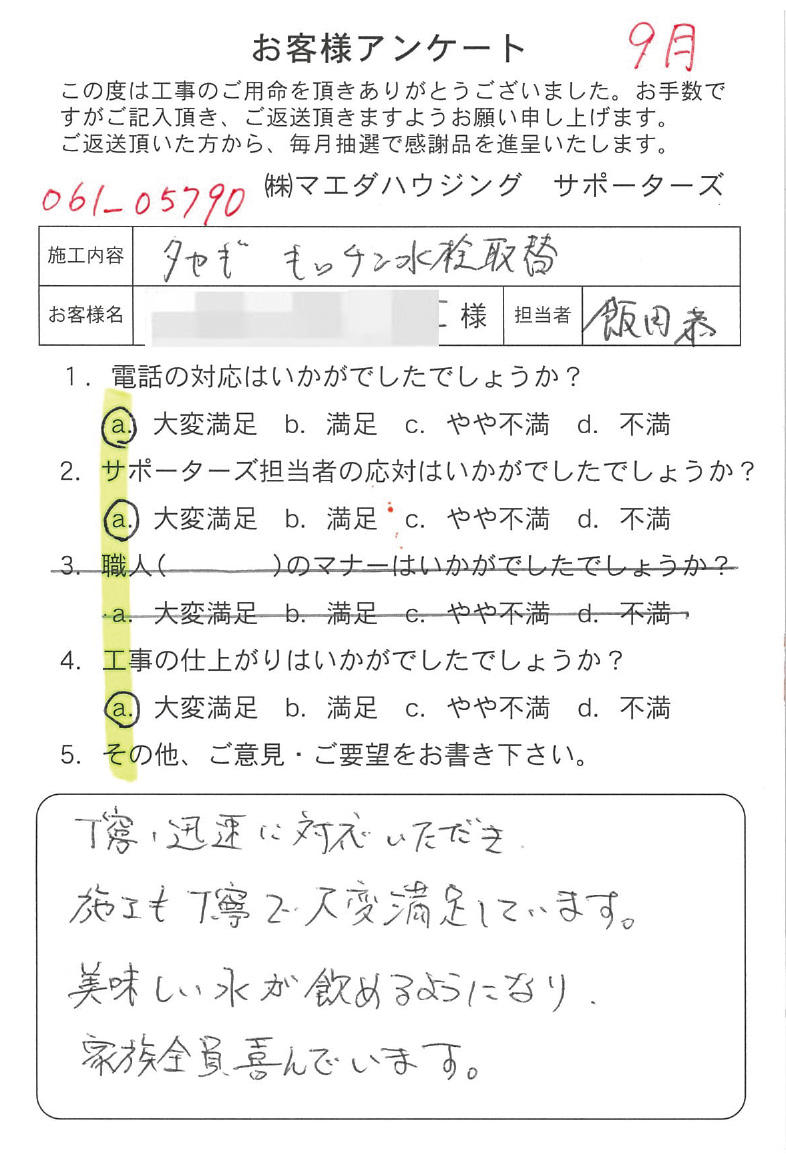 お客様アンケート 9月
この度は工事のご用命を頂きありがとうございました。お手数で
すがご記入頂き、ご返送頂きますようお願い申し上げます。
ご返送頂いた方から、毎月抽選で感謝品を進呈いたします。
061-05790 ㈱マエダハウジング サポーターズ
施工内容 タカギ キッチン水栓取替
お客様名 様 担当者 飯田恭
1. 電話の対応はいかがでしたでしょうか？
a. 大変満足 b. 満足 c. やや不満 d. 不満
2. サポーターズ担当者の応対はいかがでしたでしょうか？
a. 大変満足 b. 満足 c. やや不満 d. 不満
3. 職人( )のマナーはいかがでしたでしょうか？
a. 大変満足 b. 満足 c. やや不満 d. 不満
4. 工事の仕上がりはいかがでしたでしょうか？
a. 大変満足 b. 満足 c. やや不満 d. 不満
5. その他、ご意見・ご要望をお書き下さい。
丁寧、迅速に対応いただき
施工も丁寧で大変満足しています。
美味しい水が飲めるようになり、
家族全員喜んでいます。